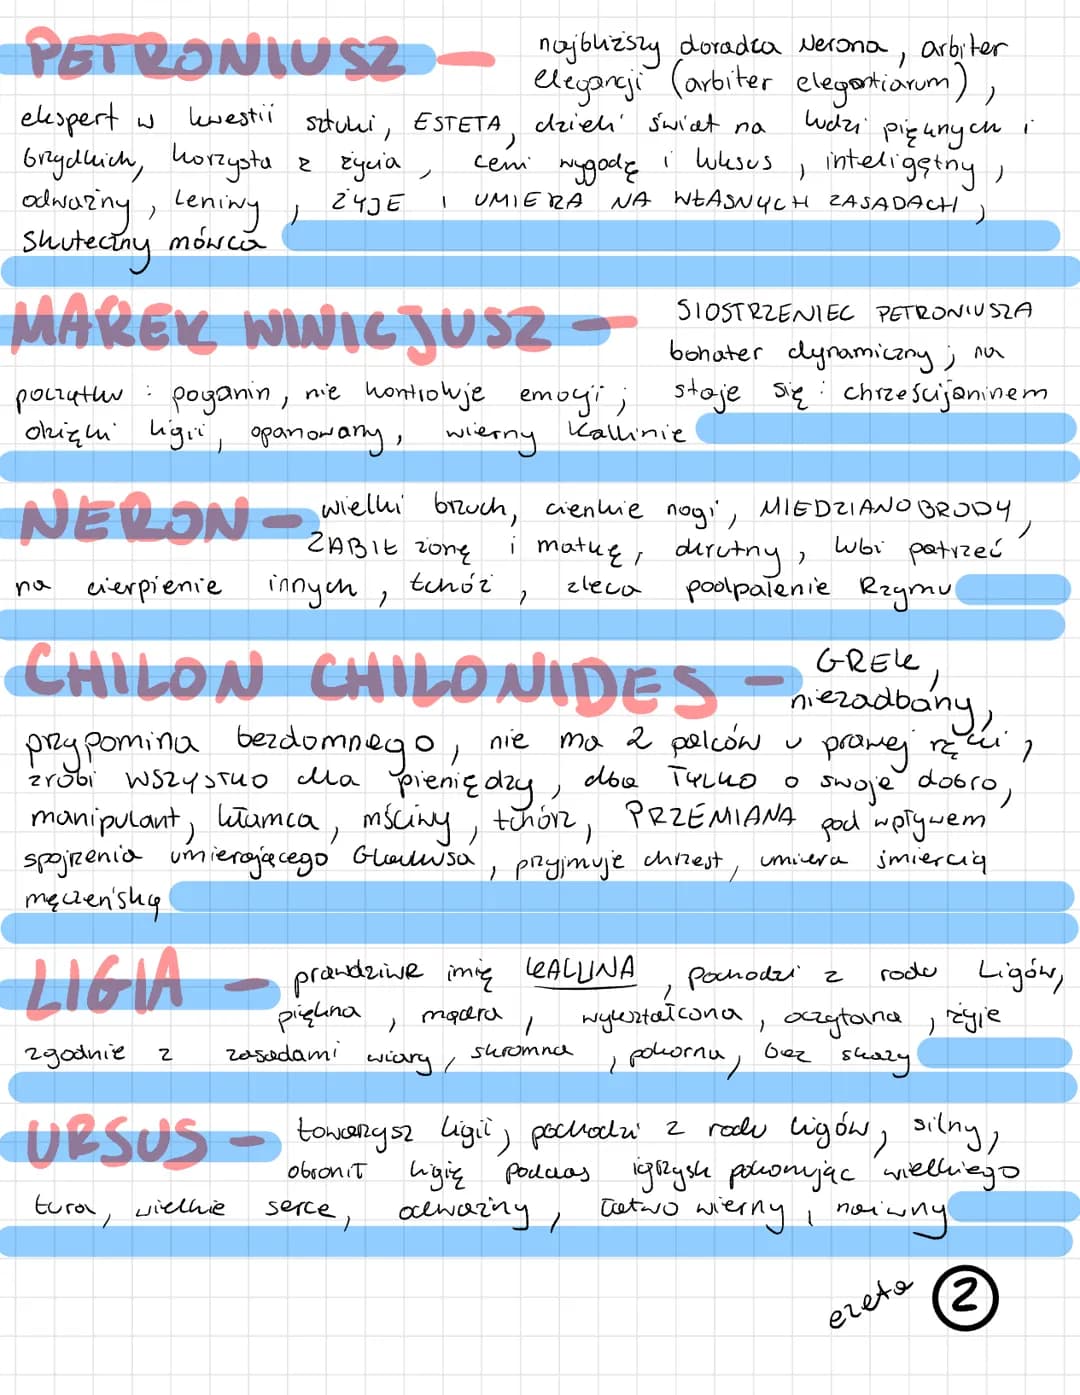 PETRONIUSZ — najbliższy doradca Nerona, arbiter
elegancji (arbiter elegantiarum),
ekspert w kwestii sztuki, ESTETA, dzieli świat na ludzi pięknych i
brzydkich, korzysta z życia, ceni wygodę i luksus, inteligętny,
odważny, leniwy, ŻYJE I UMIERA NA WŁASNYCH ZASADACH,
skuteczny mówca
MAREK WINICJUSZ — SIOSTRZENIEC PETRONIUSZA
bohater dynamiczny; na
początku: poganin, nie kontroluje emocji; staje się: chrześcijaninem
dzięki Ligii, opanowany, wierny Kallinie
NERON - wielki brzuch, cienkie nogi, MIEDZIANOBRODY,
ZABIŁ żonę i matkę, okrutny, lubi patrzeć
na cierpienie innych, tchórz, zleca podpalenie Rzymu
CHILON CHILONIDES - GREK,
niezadbany,
przypomina bezdomnego, nie ma 2 palców u prawej ręki,
zrobi WSZYSTKO dla pieniędzy, dba TYLKO o swoje dobro,
manipulant, kłamca, mściwy, tchórz, PRZEMIANA pod wpływem
spojrzenia umierającego Glaukusa, przyjmuje chrzest, umiera śmiercią
męczeńską
LIGIA - prawdziwe imię KALLINA, pochodzi z rodu Ligów,
piękna, mądra, wykształcona, oczytana, żyje
zgodnie z zasadami wiary, skromna, pokorna, bez skazy
URSUS - towarzysz Ligii, pochodzi z rodu Ligów, silny,
obronił Ligię podczas igrzysk pokonując wielkiego
tura, wielkie serce, odważny, łatwo wierny, naiwny
ezeta 2